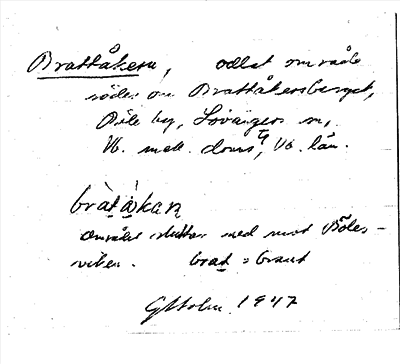 Brattåkern, odlat område
söder om Brattåkersberget,
Böle by, Lövångers sn,
Vb. mell. doms, Vb. län.
brat åkan
området sluttar ned mot Böles-
viken. brat = brant
GHolm 1947